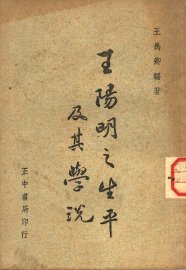 王禹卿編著
王陽明之生平
及其學說
正中書局印行